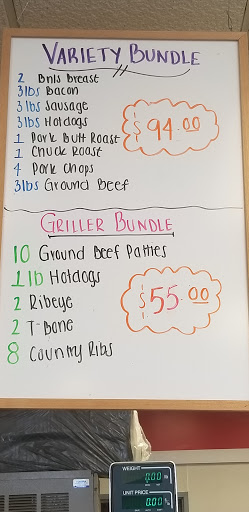 VARIETY BUNDLE
2 Bnls Breast
3lbs Bacon
3lbs Sausage
3lbs Hotdogs
1 Pork Butt Roast
1 Chuck Roast
4 Pork Chops
3lbs Ground Beef
$94.00
GRILLER BUNDLE
10 Ground Beef Patties
1lb Hotdogs
2 Ribeye
2 T-Bone
8 Country Ribs
$55.00
WEIGHT
0.00
UNIT PRICE
0.00